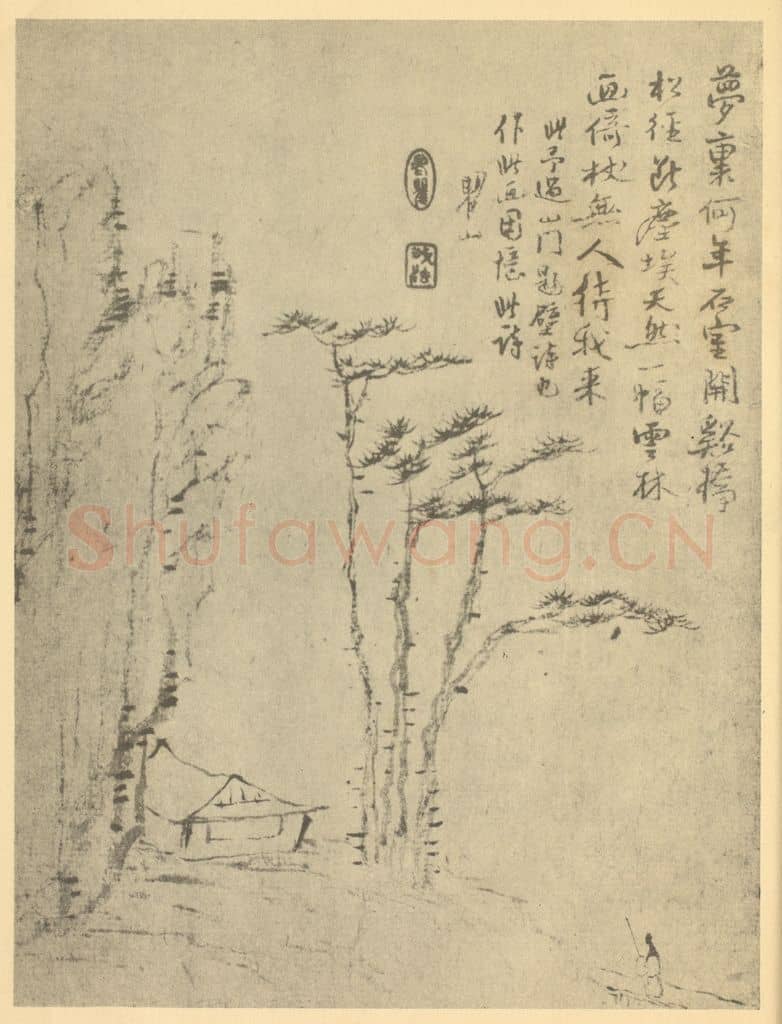 夢裏何年石室開谿橋
松徑断塵埃天然一幅雲林
画倚杖無人待我来
此予過山門題壁詩也
作此画因憶此詩
瞿山
Shufawang.CN